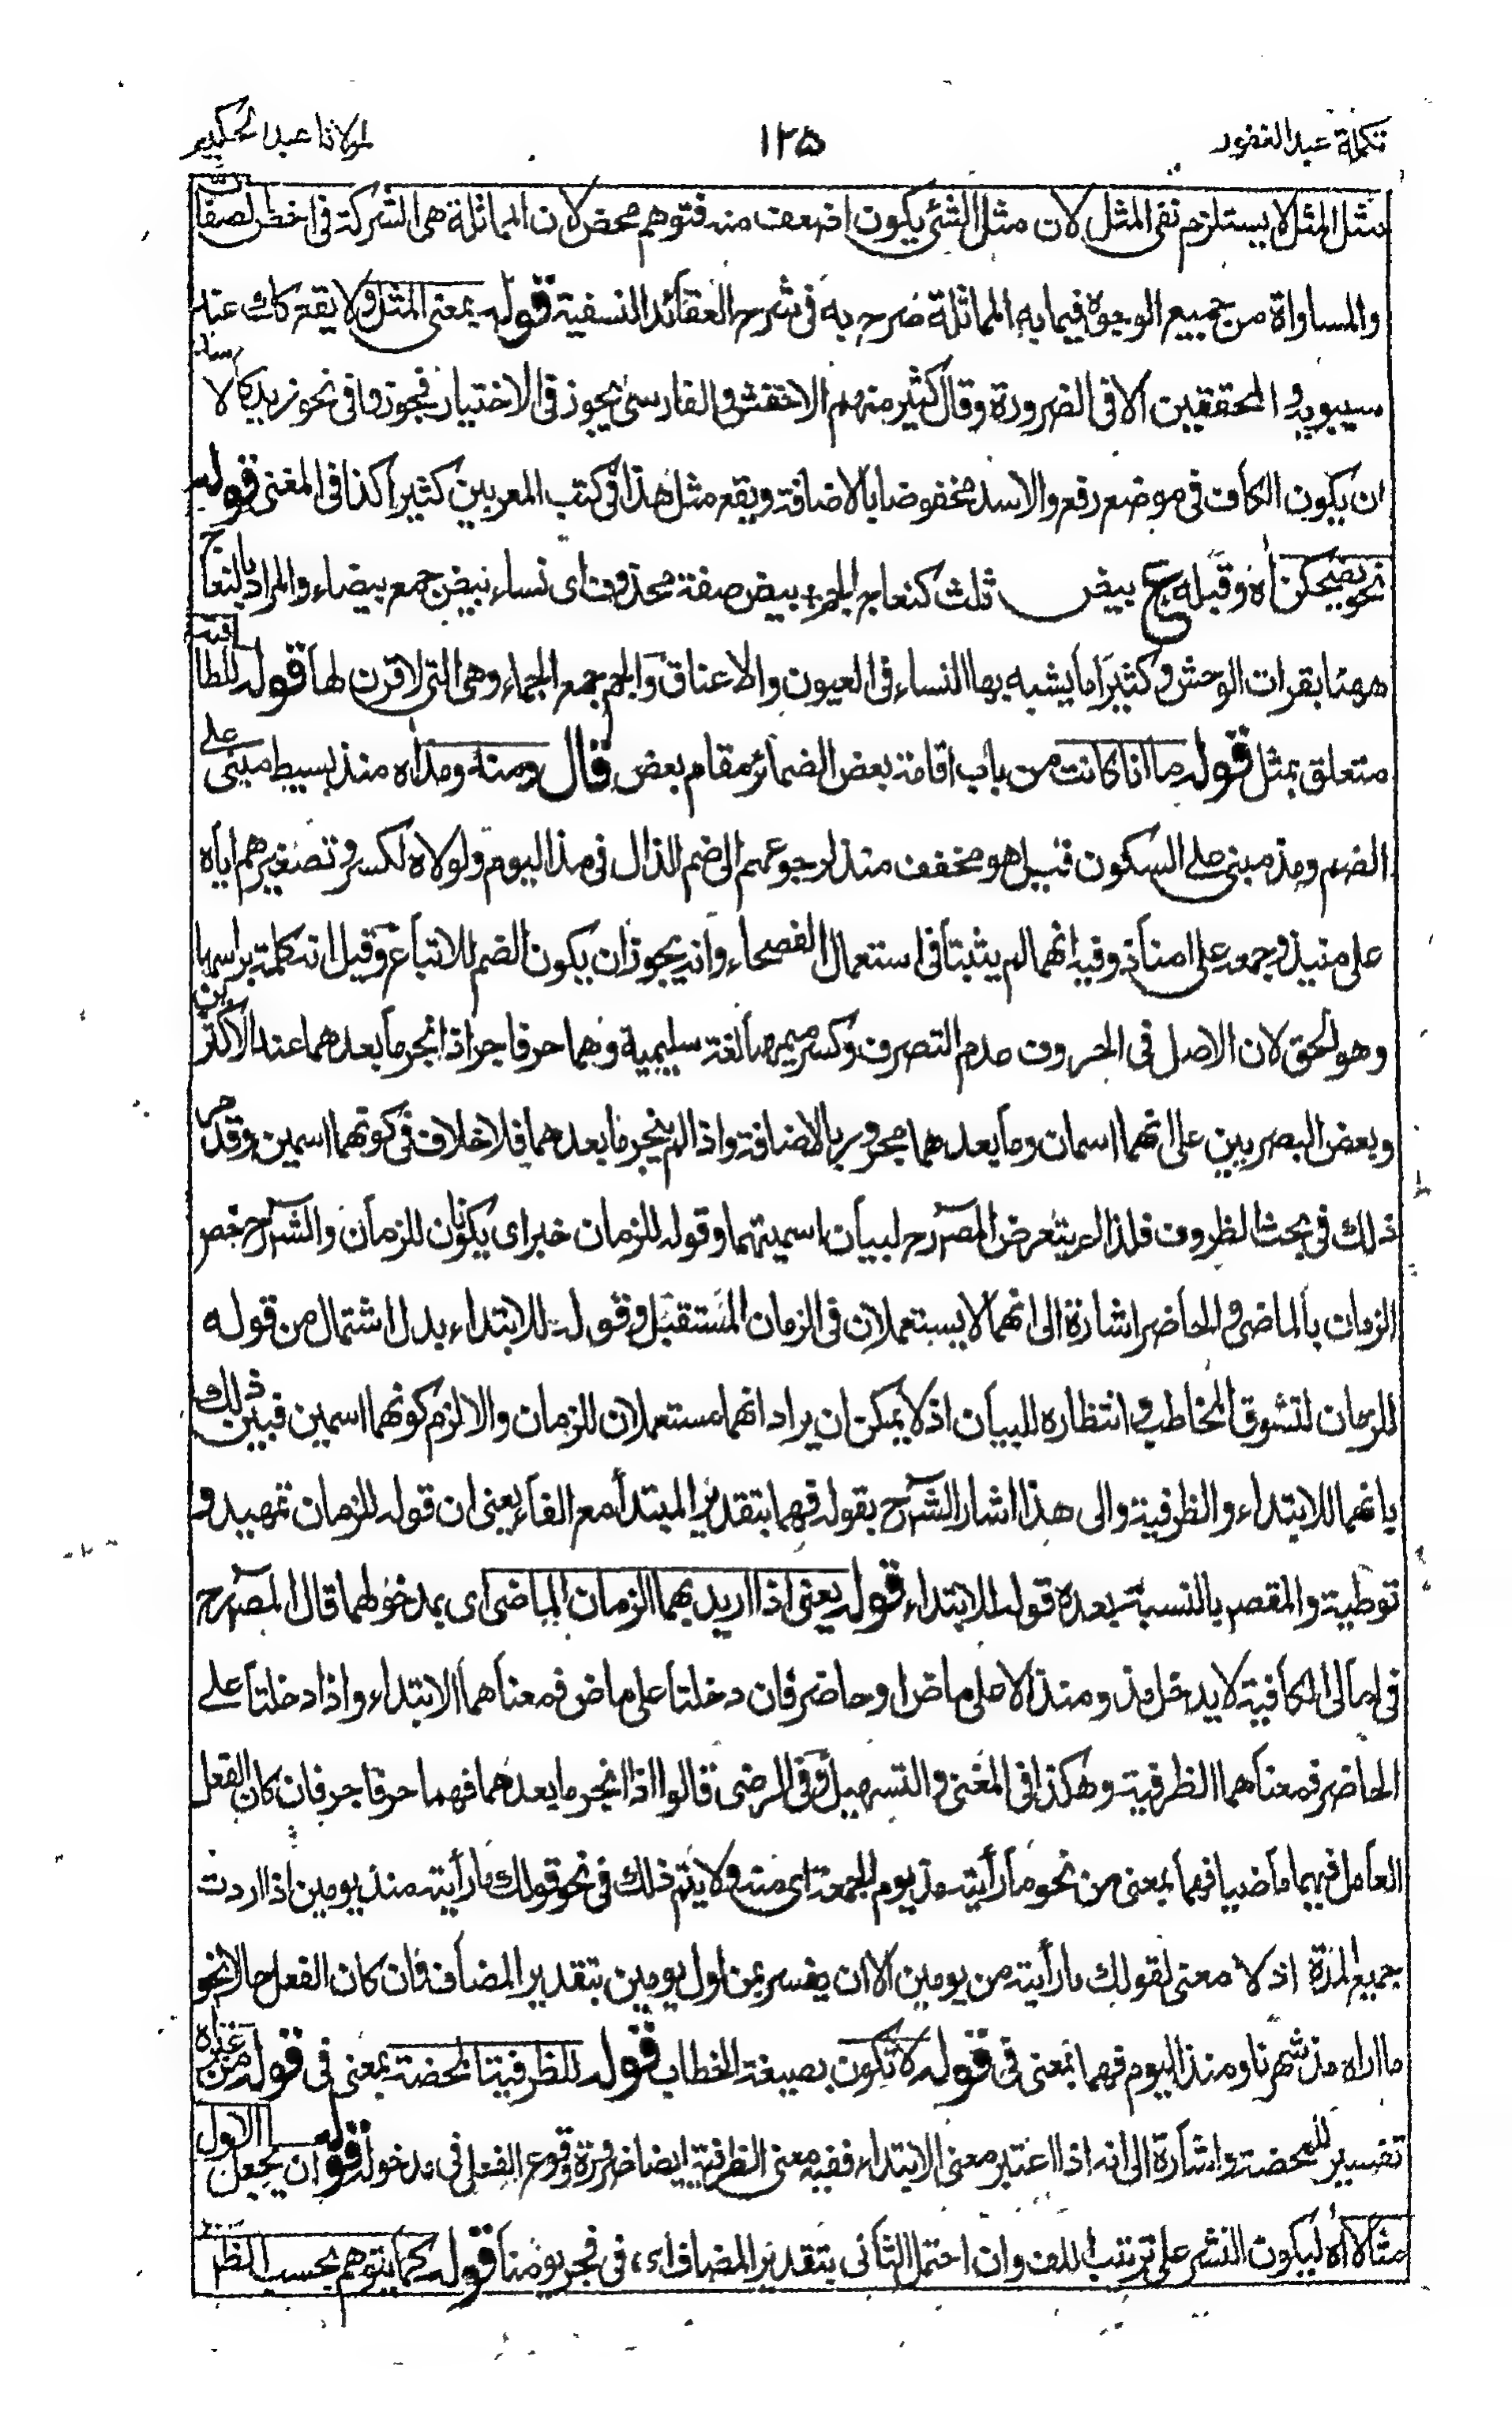 تكملة عبد الغفور ١٢۵ لمولانا عبد الحكيم
مثل المثل لا يستلزم نفى المثل لان مثل الشئ يكون اضعف منه فتوهم محض لان المماثلة هى الشركة فى اخص الصفات
والمساواة من جميع الوجوه فيما به المماثلة صرح به فى شرح العقائد النسفية قوله بمعنى المثل ولا يقع كاف عند
سيبويه والمحققين الا فى الضرورة وقال كثير منهم الاخفش والفارسى يجوز فى الاختيار فجوزوا فى نحو زيد كالاسد
ان يكون الكاف فى موضع رفع والاسد مخفوضا بالاضافة ويقع مثل هذا فى كتب المعربين كثيرا كذا فى المغنى قوله
نحو يضحكن اه وقبله ع بيض ثلث كنعاج الجم بيض صفة محذوف اى نساء بيض جمع بيضاء والمراد بالنعاج
ههنا بقرات الوحش وكثيرا ما يشبه بها النساء فى العيون والاعناق والجم جمع الجماء وهى التى لا قرن لها قوله للطافته
متعلق بمثل قوله ما انا كانت من باب اقامة بعض الضمائر مقام بعض قال ومنه ومذ اه منذ بسيط مبنى على
الضم ومذ مبنى على السكون قيل هو مخفف منذ لرجوعهم الى ضم الذال فى مذ اليوم ولولاه لكسر وتصغيرهم اياه
على منيذ وجمعه على امناذ وفيه انهما لم يثبتا فى استعمال الفصحاء وانه يجوز ان يكون الضم للاتباع وقيل انه كلمة براسها
وهو الحق لان الاصل فى الحروف عدم التصرف وكسر ميمهما لغة سليمية وهما حرفا جر اذا انجر ما بعدهما عند الاكثرين
وبعض البصريين على انهما اسمان وما بعدهما مجرور بالاضافة واذا لم ينجر ما بعدهما فلا خلاف فى كونهما اسمين وقد مر
ذلك فى بحث الظروف فلذا لم يتعرض المصرح لبيان اسميتهما وقوله للزمان خبر اى يكونان للزمان والشرح خص
الزمان بالماضى والحاضر اشارة الى انهما لا يستعملان فى الزمان المستقبل وقوله للابتداء بدل اشتمال من قوله
للزمان لتشوق المخاطب وانتظاره للبيان اذ لا يمكن ان يراد انهما مستعملان للزمان والا لزم كونهما اسمين فبين ذلك
بانهما للابتداء والظرفية والى هذا اشار الشرح بقوله فهما بتقدير المبتدأ مع الفاء يعنى ان قوله للزمان تمهيد و
توطية والمقصم بالنسبة بعده قوله للابتداء قوله يعنى اذا اريد بهما الزمان الماضى اى بمدخولهما قال المصرح
فى امالى الكافية لا يدخل مذ ومنذ الا على ماض او حاضر فان دخلتا على ماض فمعناهما الابتداء واذا دخلتا على
الحاضر فمعناهما الظرفية وهكذا فى المغنى والتسهيل وفى الرضى قالوا اذا انجر ما بعدهما فهما حرفا جر فان كان الفعل
العامل فيهما ماضيا فهما بمعنى من نحو ما رأيته مذ يوم الجمعة اى منه ولا يتم ذلك فى نحو قولك ما رأيته منذ يومين اذا اردت
جميع المدة اذ لا معنى لقولك ما رأيته من يومين الا ان يفسر بمن اول يومين بتقدير المضاف فان كان الفعل حالا نحو
ما اراه مذ شهرنا ومنذ اليوم فهما بمعنى فى قوله لا تكون بصيغة الخطاب قوله للظرفية المحضة بمعنى فى قوله من غيره
تفسير للمحضة واشارة الى انه اذا اعتبر معنى الابتداء ففيه معنى الظرفية ايضا ضرورة وقوع الفعل فى مدخوله قوله ان يجعل الاول
مثالا اه ليكون النشر على ترتيب اللف وان احتمل الثانى بتقدير المضاف اى فى فجر يومنا قوله كما يتوهم بحسب النظر